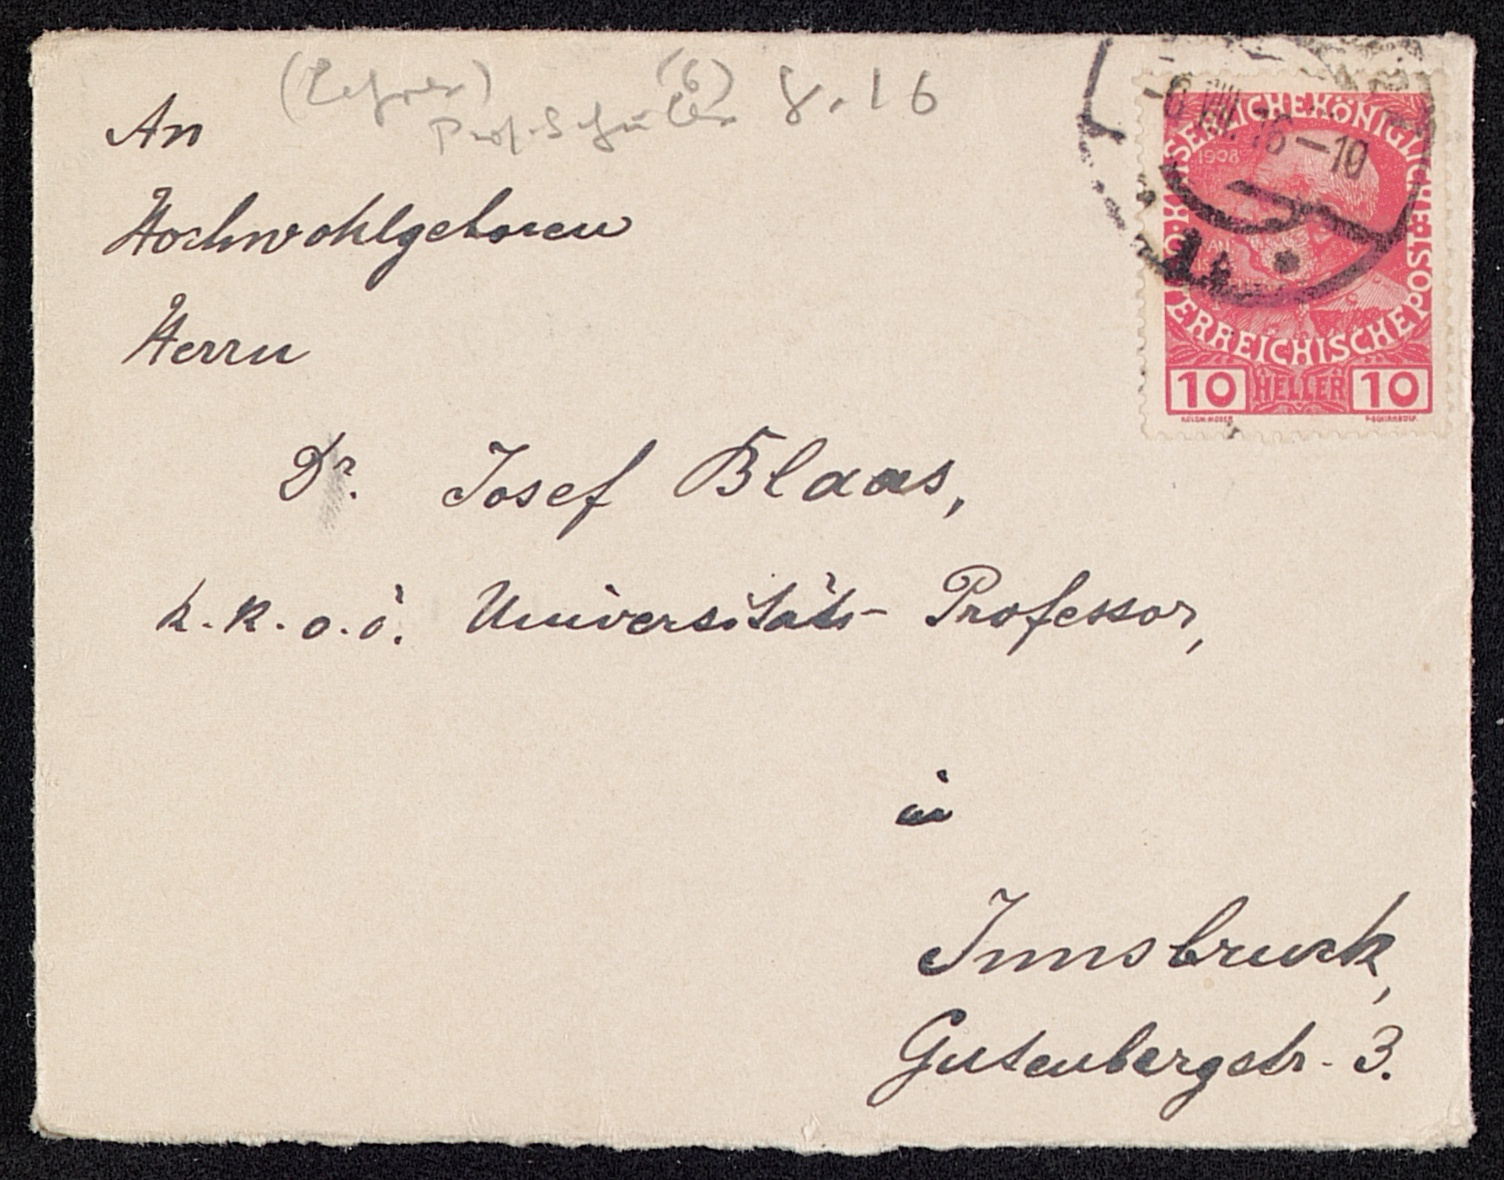 (Lehrer) (6) 8.16
Prof. Schüler
An
Hochwohlgeboren
Herrn
Dr. Josef Blaas,
k. k. o. ö. Universitäts-Professor,
in
Innsbruck,
Gutenbergstr. 3.
-6.VIII.16-10
KAISERLICHE KÖNIGLICHE ÖSTERREICHISCHE POST
1908
10 HELLER 10
KOLOM. MOSER. F. SCHIRNBÖCK.